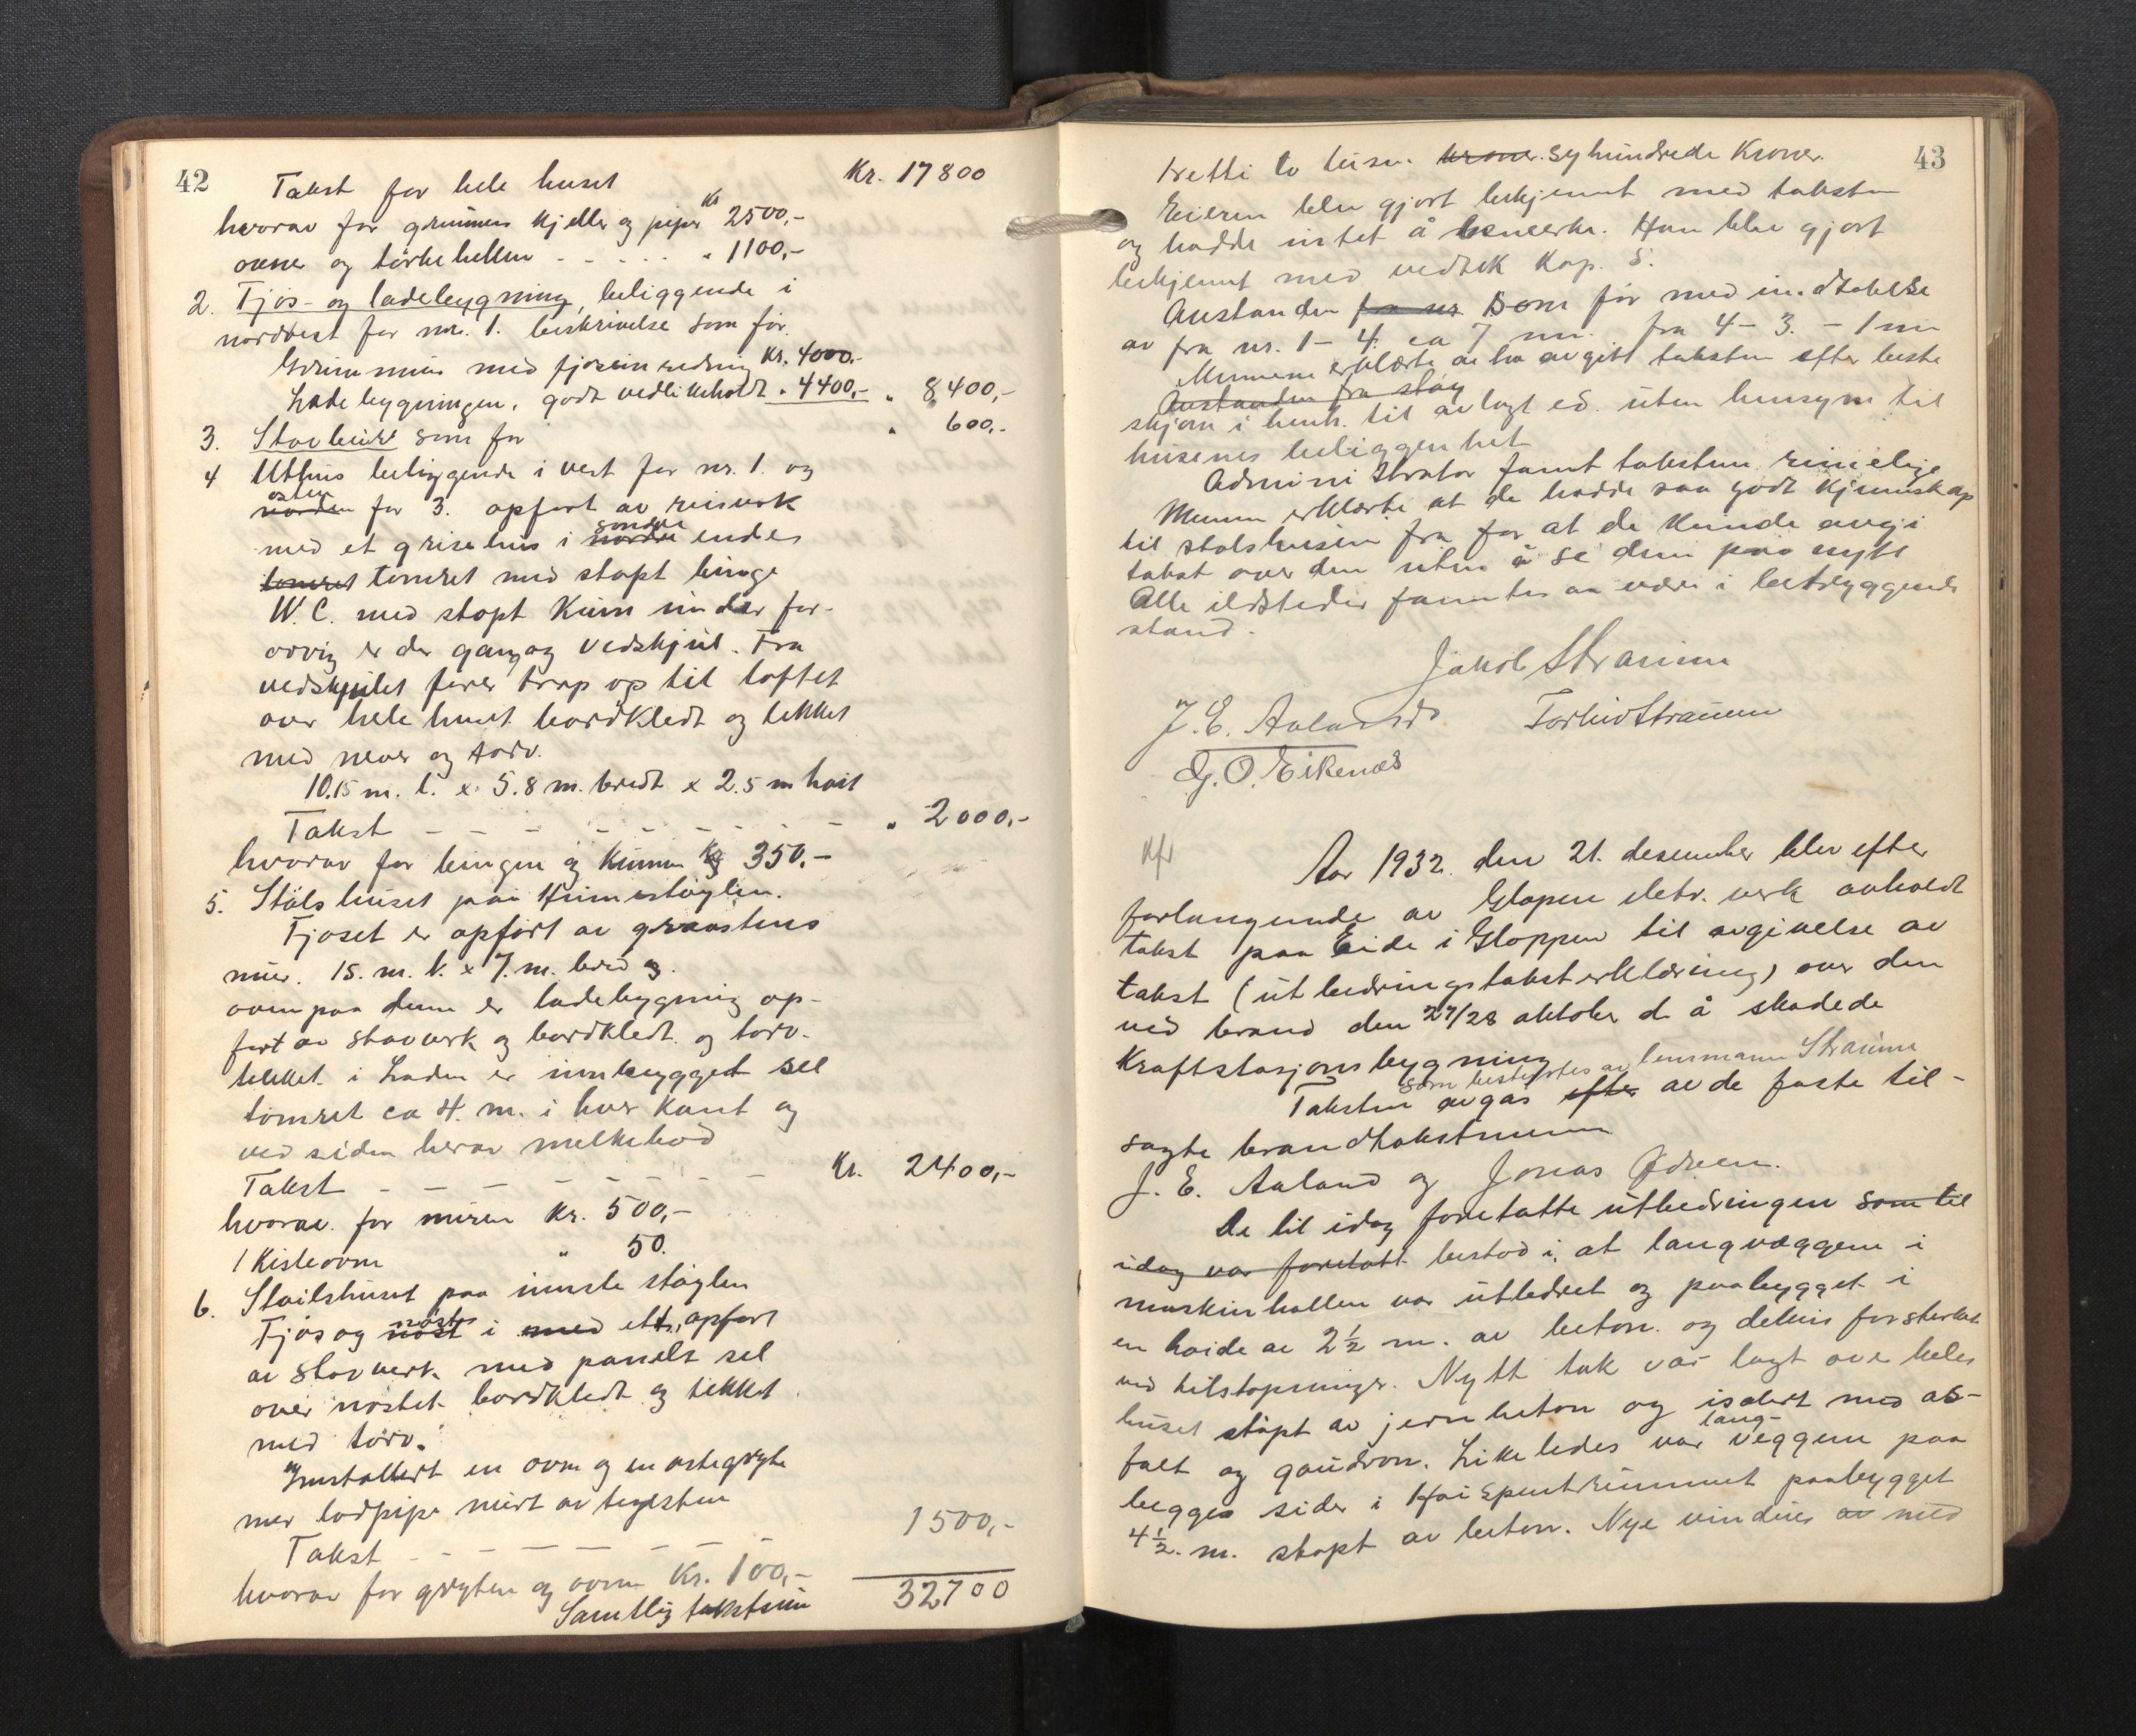 42
Takst for hele huset Kr. 17800
hvorav for grunmur kjeller og piper Kr 2500,-
ovner og törkehellen - - - - - " 1100,-
2. Fjös- og ladebygning, beliggende i
nordvest for nr. 1. beskrivelse som för.
Grunmur med fjösinredning Kr. 4000.-
Ladebygningen, godt vedlikeholdt " 4400,- " 8400,-
3. Stavbure som för " 600,-
4 Uthus beliggende i vest for nr. 1. og
norden östen for 3. opfört av reisverk
med et grisehus i nordre söndre ende
tomret tömret med stöpt binge
W.C. med stöpt Kum under for-
övrig er der gang og vedskjul. Fra
vedskjulet förer trap op til loftet
over hele huset bordkledt og tekket
med never og torv.
10.15 m. l. x 5.8 m. bredt x 2.5 m höit
Takst - - - - - - - - " 2000,-
hvorav for bingen og Kummen Kr 350,-
5. Stölshuset paa Himestöylen.
Fjöset er opfört av graastens
mur. 15. m. l. x 7. m. bred og
ovenpaa denne er ladebygning op-
fört av stavverk og bordkledt og torv-
tekket. i Laden er innbygget sel
tömret ca 4. m. i hver kant og
ved siden herav melkebod
Takst - - - - - - - Kr. 2400,-
hvorav for muren Kr. 500,-
1 Kisteovn " 50.
6. Stöilshuset paa inste stöylen
Fjös og nöst nöste i med ett, opfört
av stavverk med panelt sel
over nöstet bordkledt og tekket
med torv.
Installert en ovn og en ostegryte
mer lodpipe mürt av teglsten
Takst - - - - - - 1500,-
hvorav for gryten og ovn Kr. 100,-
Samtlig takstsum 32700
43
tretti to tusn. kroner. syhundrede Kroner.
Eieren blev gjort bekjennt med taksten
og hadde intet å bemerke. Han blev gjort
bekjennt med vedtek Kap. 5.
Avstanden fra nr som för med indtakelse
av fra nr. 1 - 4. ca 7 m. fra 4 - 3. - 1 m
Mennene erklærte at ha avgitt taksten efter beste
Avstanden fra stöy
skjön i henh. til avlagt ed. uten hensyn til
husenes beliggenhet
Administrator fant taksten rimelige
Mennene erklærte at de hadde saa godt kjennskap
til stölshusene fra för at de kunde avgi
takst over dem uten å se dem paa nytt
Alle ildsteder fantes aa være i betryggende
stand.
Jakob Straume
J. E. Aaland Torleiv Straume
G. O. Eikenæs
Aar 1932. den 21. desember blev efter
forlangende av Glopen elektr. verk avholdt
takst paa Eide i Gloppen til avgivelse av
takst (utbedringstaksterklæring) over den
ved brand den 27/28 oktober d. å skadede
Kraftstasjonsbygning
som bestyrtes av lensmann Straume
Taksten avgas efter av de faste til-
sagte brandtakstmenn
J. E. Aaland og Jonas Ödven.
De til idag foretatte utbedringen som til
idag var foretatt bestod i, at langvæggene i
maskinhallen var utbedret og paabygget i
en höide av 2½ m. av beton og delvis forsterket
ved tilstöpninger. Nytt tak var lagt over hele
huset stöpt av jernbeton og isolert med as-
falt og goudron. Likeledes var lang-veggene paa
begge sider i Höispentrummet paabygget
4½ m. stöpt av beton. Nye vinduer av med